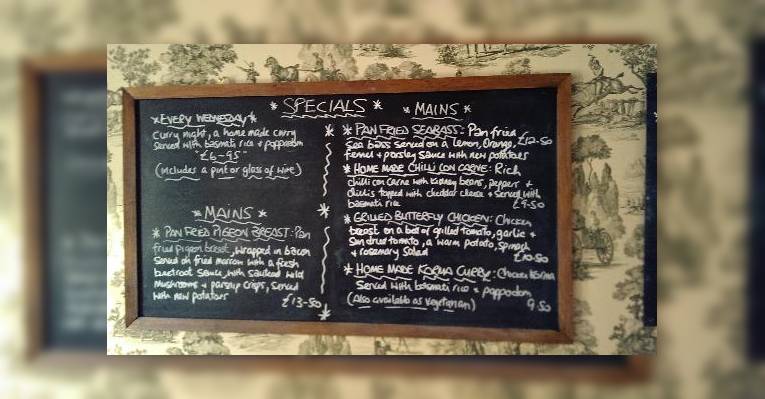 * SPECIALS *
* EVERY WEDNESDAY *
Curry night, a home made curry
served with basmati rice + poppadom
"£6-95"
(includes a pint or glass of wine)
* MAINS *
* PAN FRIED PIGEON BREAST: Pan
fried pigeon breast, wrapped in bacon
served on fried marrow with a fresh
beetroot sauce, with sauteed wild
mushrooms + parsnip crisps, served
with new potatoes
£13-50
* MAINS *
* PAN FRIED SEABASS: Pan fried
Sea bass served on a lemon, Orange, £12-50
fennel + parsley sauce with new potatoes
* HOME MADE CHILLI CON CARNE: Rich
chilli con carne with kidney beans, peppers +
chillis topped with cheddar cheese + served with
basmati rice £9-50
* GRILLED BUTTERFLY CHICKEN: Chicken
breast on a bed of grilled tomato, garlic +
sundried tomato, a warm potato, spinach
+ rosemary salad £10-50
* HOME MADE KORMA CURRY: Chicken
Served with basmati rice + poppadom
(Also available as vegetarian) 9.50